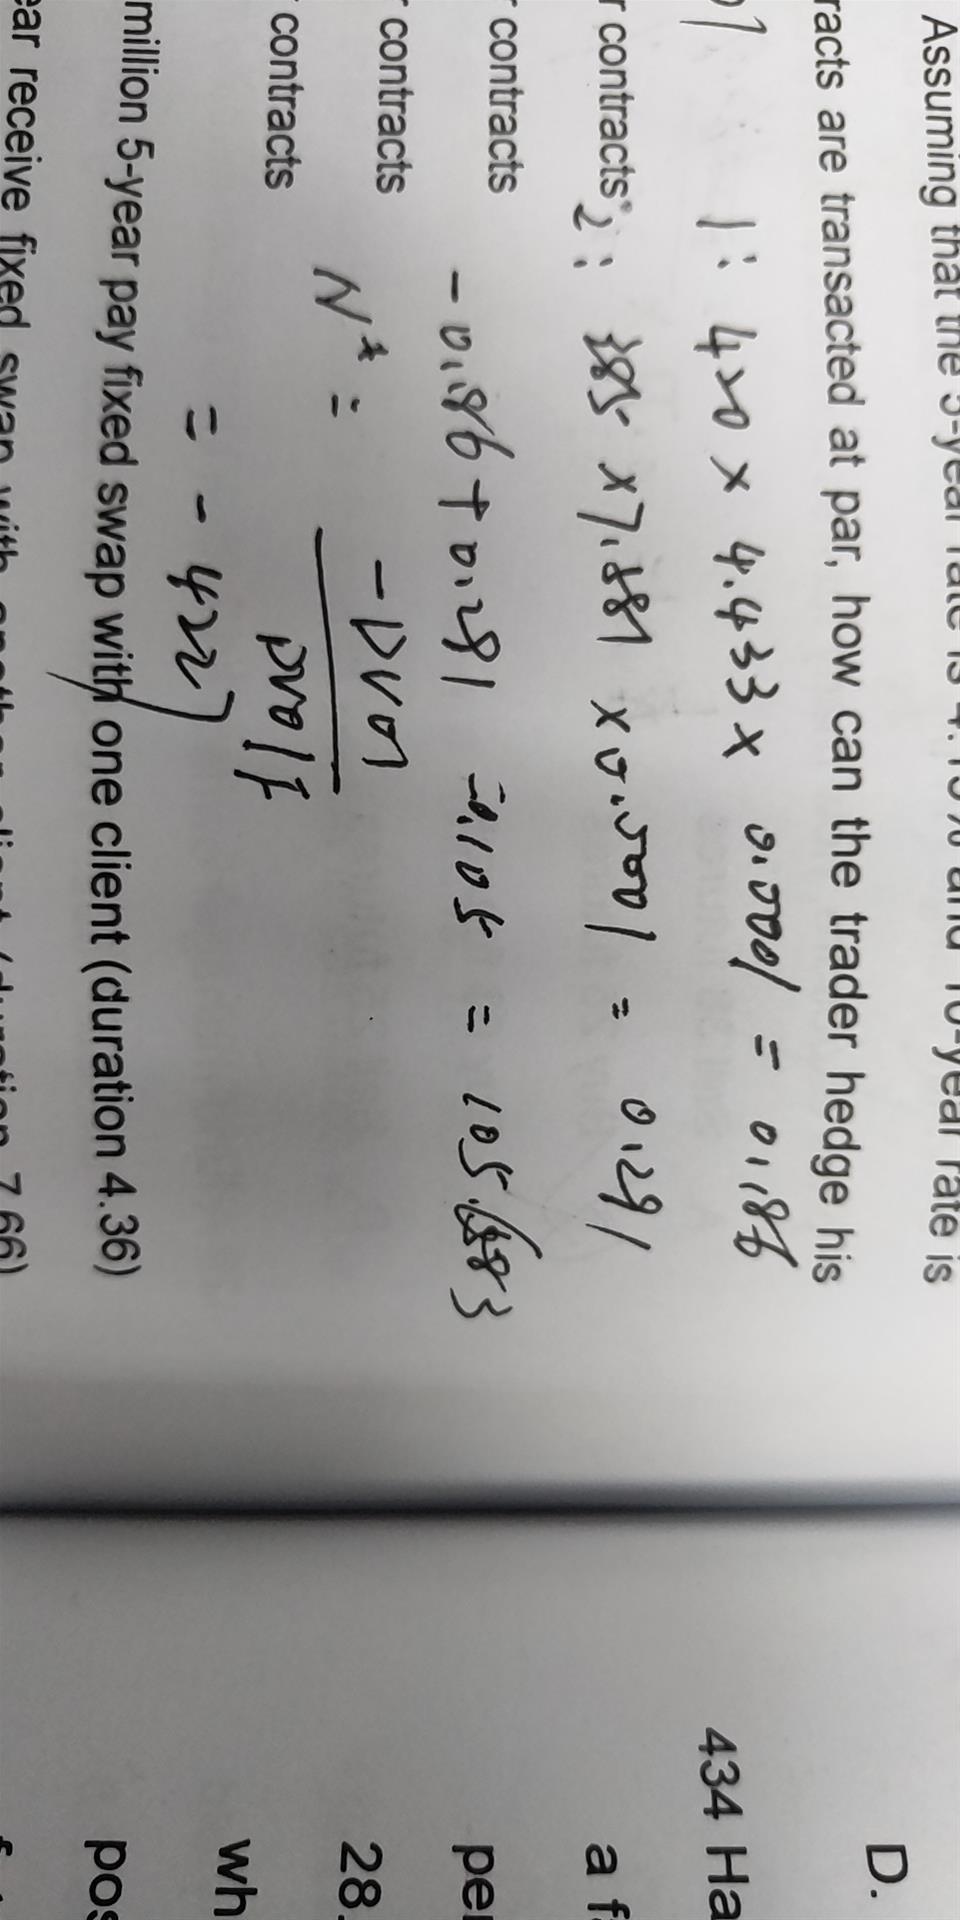 Assuming that the 5-year rate is 4.15% and 10-year rate is
racts are transacted at par, how can the trader hedge his
1: 420 × 4.433 × 0.0001 = 0.186
r contracts
2: 385 × 7.581 × 0.0001 = 0.291
r contracts
-0.186 + 0.291 = 0.105 = 105.883
r contracts
N* = -DV01
DV01f
r contracts
= -422
million 5-year pay fixed swap with one client (duration 4.36)
ear receive fixed swap with another client (duration 7.66)
D.
434 Ha
a f
per
28.
wh
pos